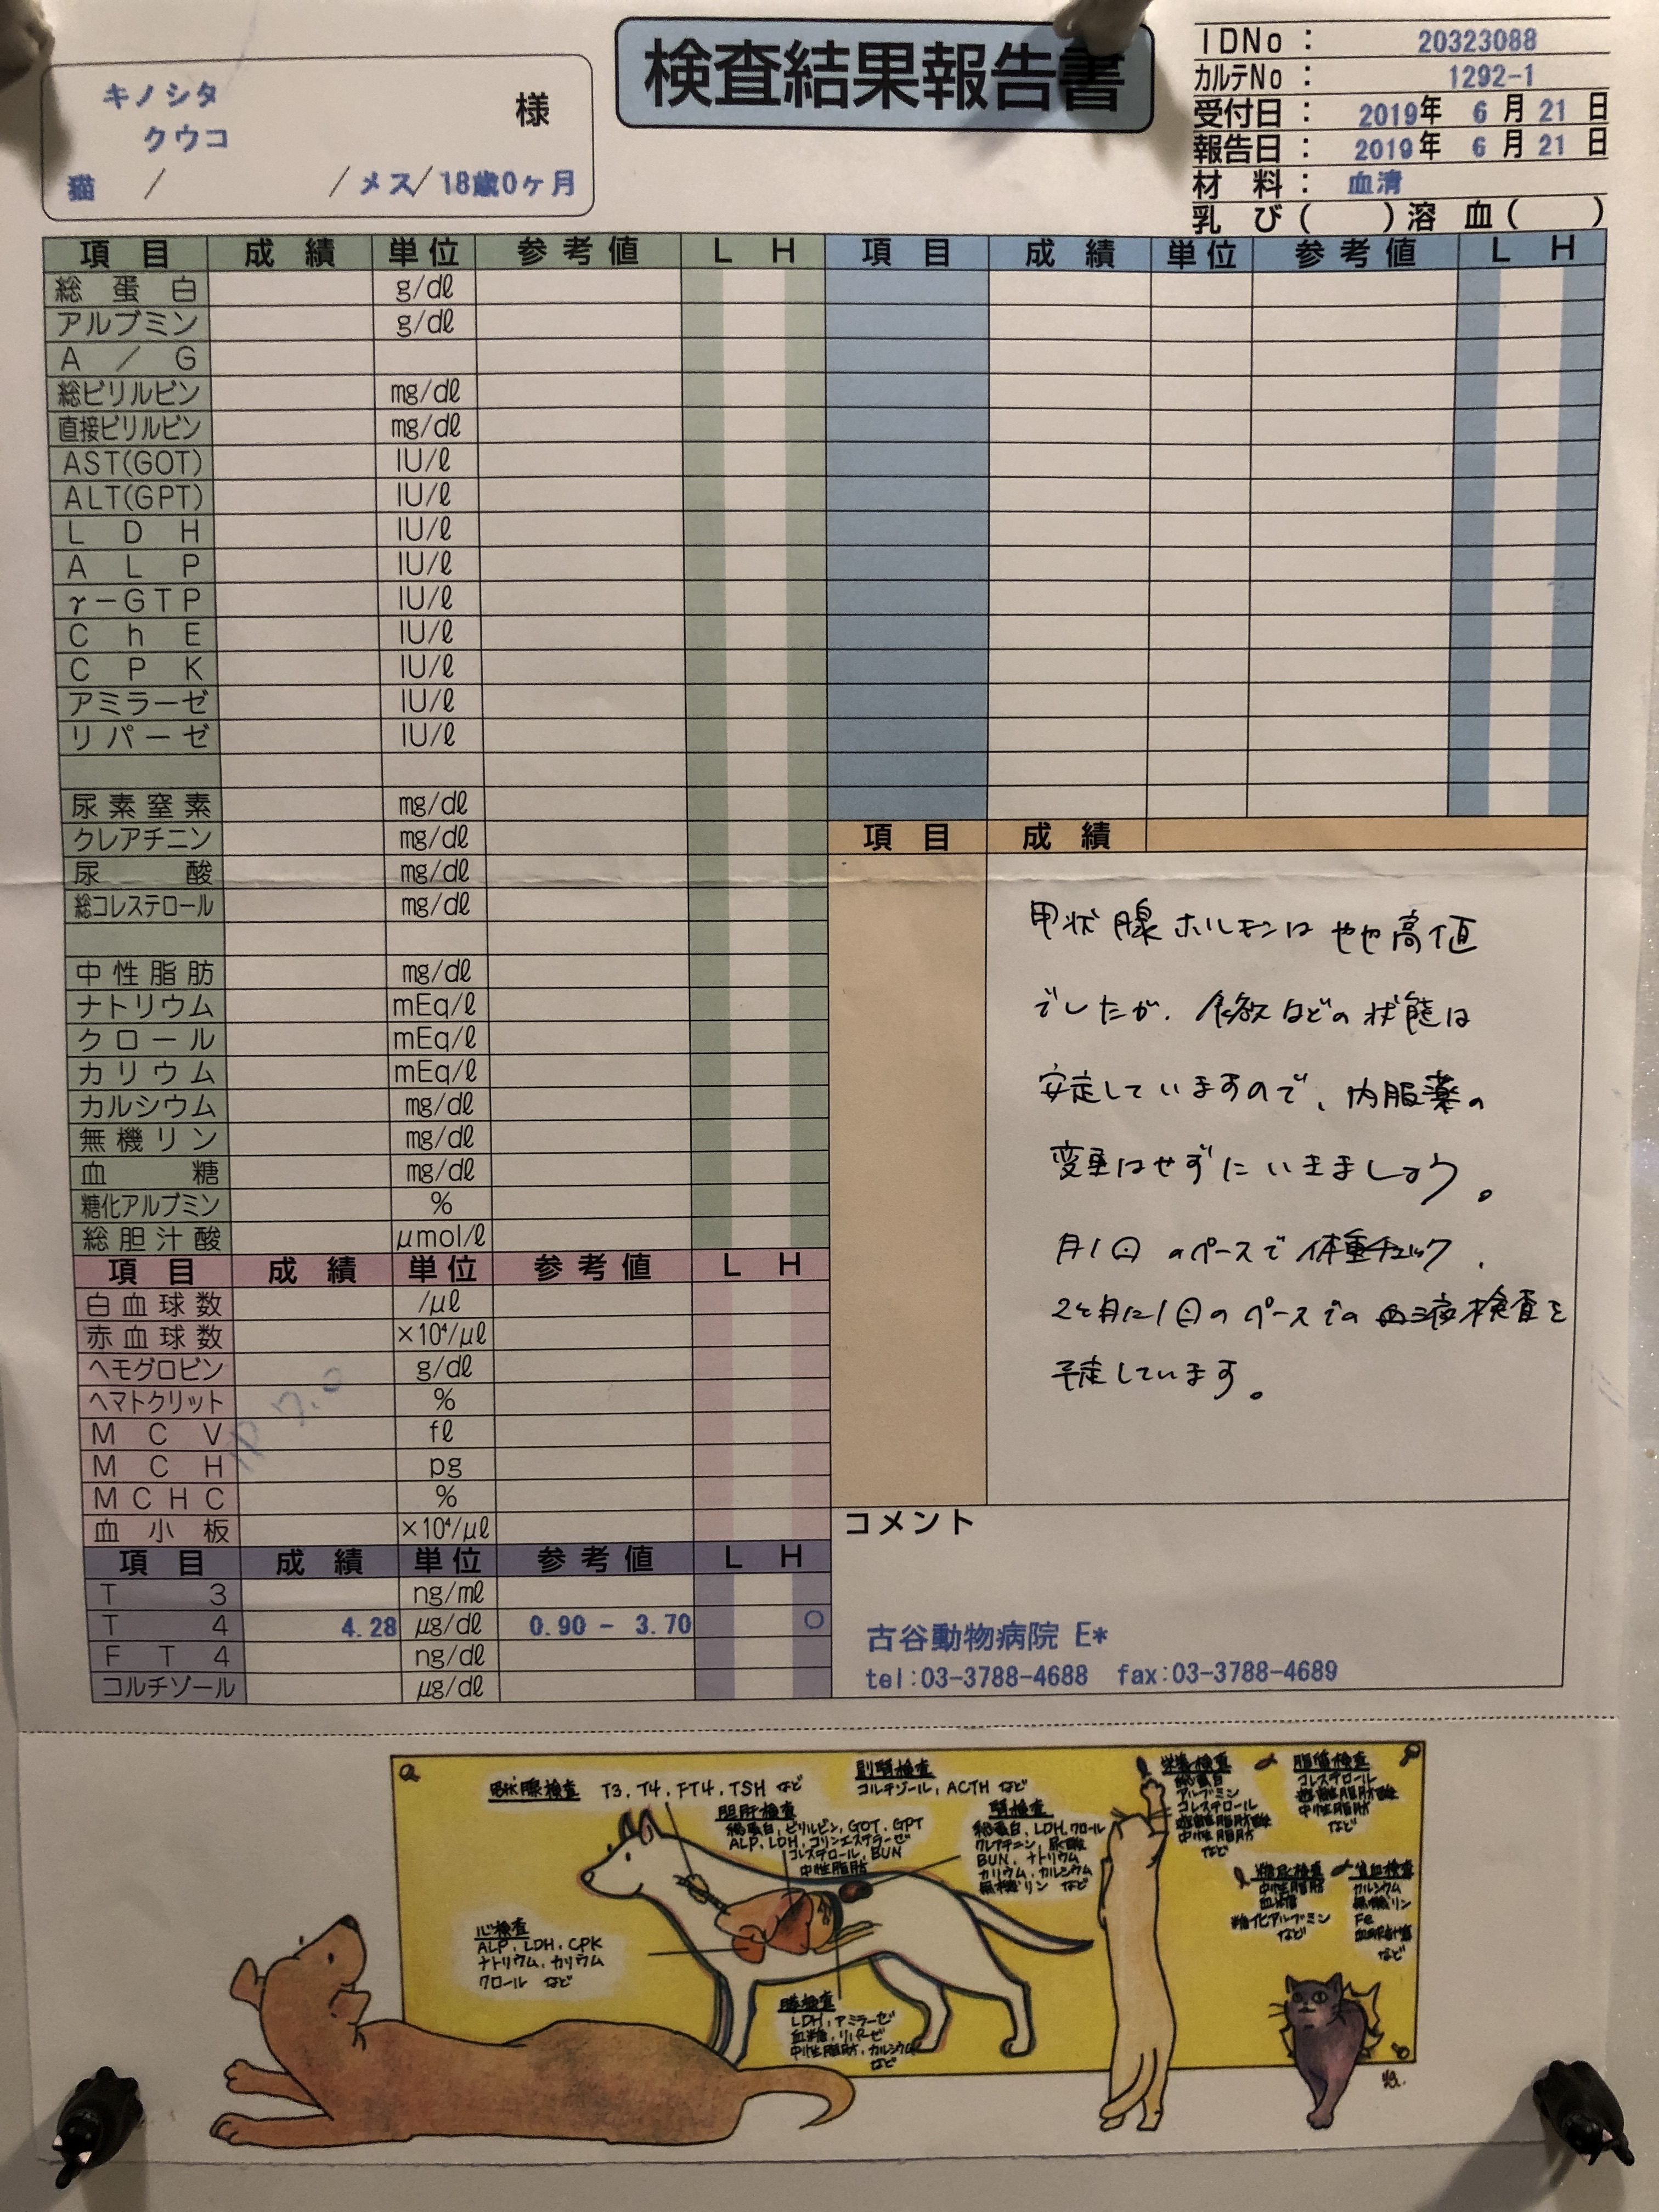 検査結果報告書
キノシタ
クウコ
様
猫 / / メス/ 18歳0ヶ月
IDNo : 20323088
カルテNo : 1292-1
受付日 : 2019年 6月 21日
報告日 : 2019年 6月 21日
材 料 : 血清
乳 び ( ) 溶 血 ( )
項目 成績 単位 参考値 L H
総蛋白 g/dl
アルブミン g/dl
A/G
総ビリルビン mg/dl
直接ビリルビン mg/dl
AST(GOT) IU/l
ALT(GPT) IU/l
LDH IU/l
ALP IU/l
γ-GTP IU/l
ChE IU/l
CPK IU/l
アミラーゼ IU/l
リパーゼ IU/l
尿素窒素 mg/dl
クレアチニン mg/dl
尿酸 mg/dl
総コレステロール mg/dl
中性脂肪 mg/dl
ナトリウム mEq/l
クロール mEq/l
カリウム mEq/l
カルシウム mg/dl
無機リン mg/dl
血糖 mg/dl
糖化アルブミン %
総胆汁酸 μmol/l
項目 成績 単位 参考値 L H
白血球数 /μl
赤血球数 ×10⁴/μl
ヘモグロビン g/dl
ヘマトクリット %
MCV fl
MCH pg
MCHC %
血小板 ×10⁴/μl
項目 成績 単位 参考値 L H
T3 ng/ml
T4 4.28 μg/dl 0.90 - 3.70 ○
FT4 ng/dl
コルチゾール μg/dl
項目 成績 単位 参考値 L H
項目 成績
甲状腺ホルモンは やや高値
でしたが、食欲などの状態は
安定していますので、内服薬の
変更はせずにいきましょう。
月1回のペースで体重チェック、
2ヶ月に1回のペースでの血液検査を
予定しています。
コメント
古谷動物病院 E*
tel:03-3788-4688 fax:03-3788-4689
甲状腺検査 T3, T4, FT4, TSH など
副腎検査
コルチゾール, ACTH など
胆肝検査
総蛋白, ビリルビン, GOT, GPT
ALP, LDH, コリンエステラーゼ
コレステロール, BUN
中性脂肪
腎検査
総蛋白, LDH, クロール
クレアチニン, 尿酸
BUN, ナトリウム
カリウム, カルシウム
無機リン など
栄養検査
総蛋白
アルブミン
コレステロール
遊離脂肪酸
中性脂肪
など
脂質検査
コレステロール
遊離脂肪酸
中性脂肪
など
心検査
ALP, LDH, CPK
ナトリウム, カリウム
クロール など
膵検査
LDH, アミラーゼ
血糖, リパーゼ
中性脂肪, カルシウム
など
糖尿検査
中性脂肪
血糖
糖化アルブミン
など
貧血検査
カルシウム
無機リン
Fe
など